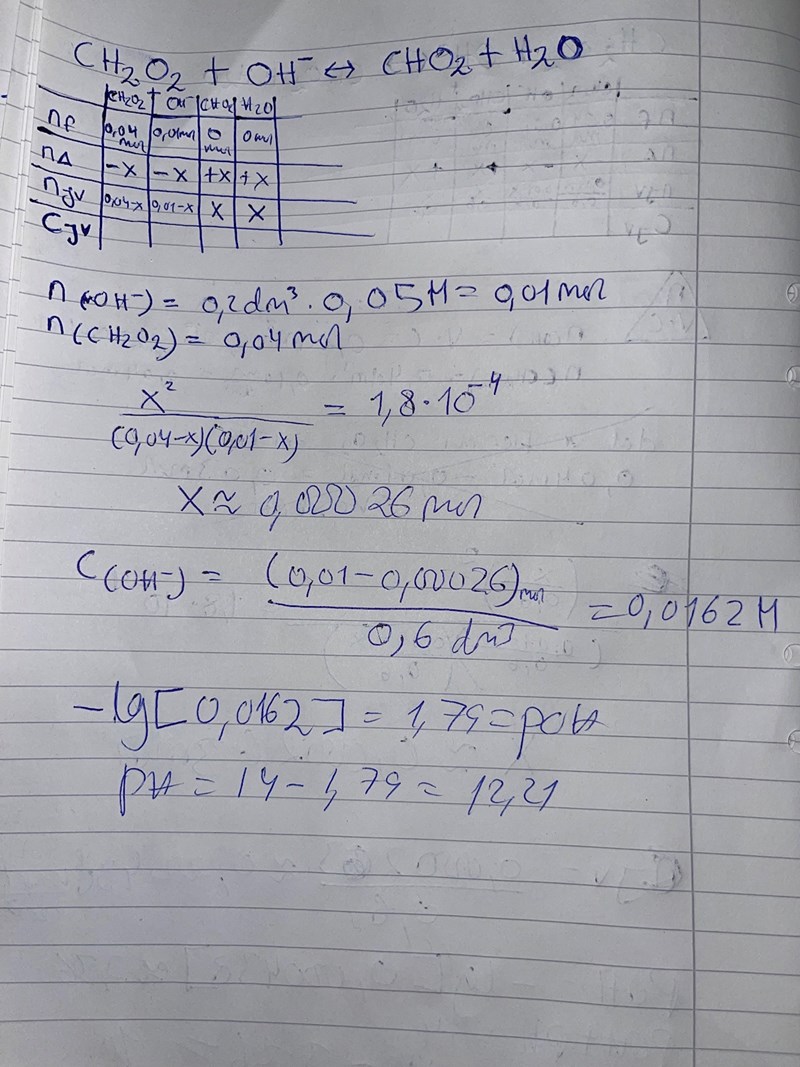 CH₂O₂ + OH⁻ ↔ CHO₂ + H₂O
CH₂O₂ OH⁻ CHO₂ H₂O
nf 0,04 mol 0,01mol 0 mol 0mol
nΔ -x -x +x +x
njv 0,04-x 0,01-x x x
Cjv
n(OH⁻) = 0,2dm³ · 0,05M = 0,01mol
n(CH₂O₂) = 0,04mol
x² / (0,04-x)(0,01-x) = 1,8·10⁻⁴
x ≈ 0,00026 mol
C(OH⁻) = (0,01-0,00026)mol / 0,6 dm³ = 0,0162M
-lg[0,0162] = 1,79 = pOH
pH = 14 - 1,79 = 12,21